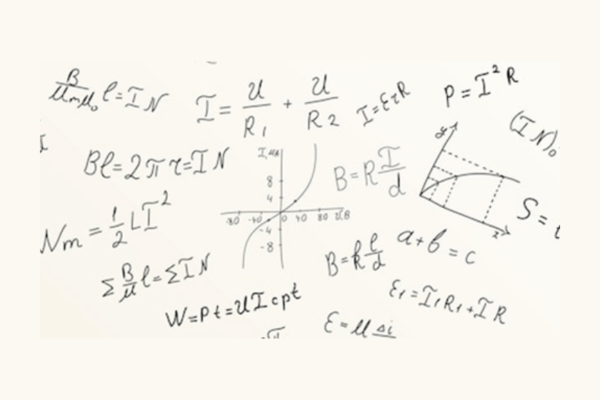 B/μmμ₀ l = I N
I = U/R₁ + U/R₂
I = ετR
P = I²R
(IN)₀
Bl = 2πτ = IN
I, mA
8
4
-80 -40 0 40 80 U,B
-4
-8
B = R I/d
y
x
S =
Nm = 1/2 LI²
Σ B/μ l = ΣIN
B = k l/d
a + b = c
W = Pt = UI cpt
ε₁ = I₁R₁ + IR
ε = μ Δi